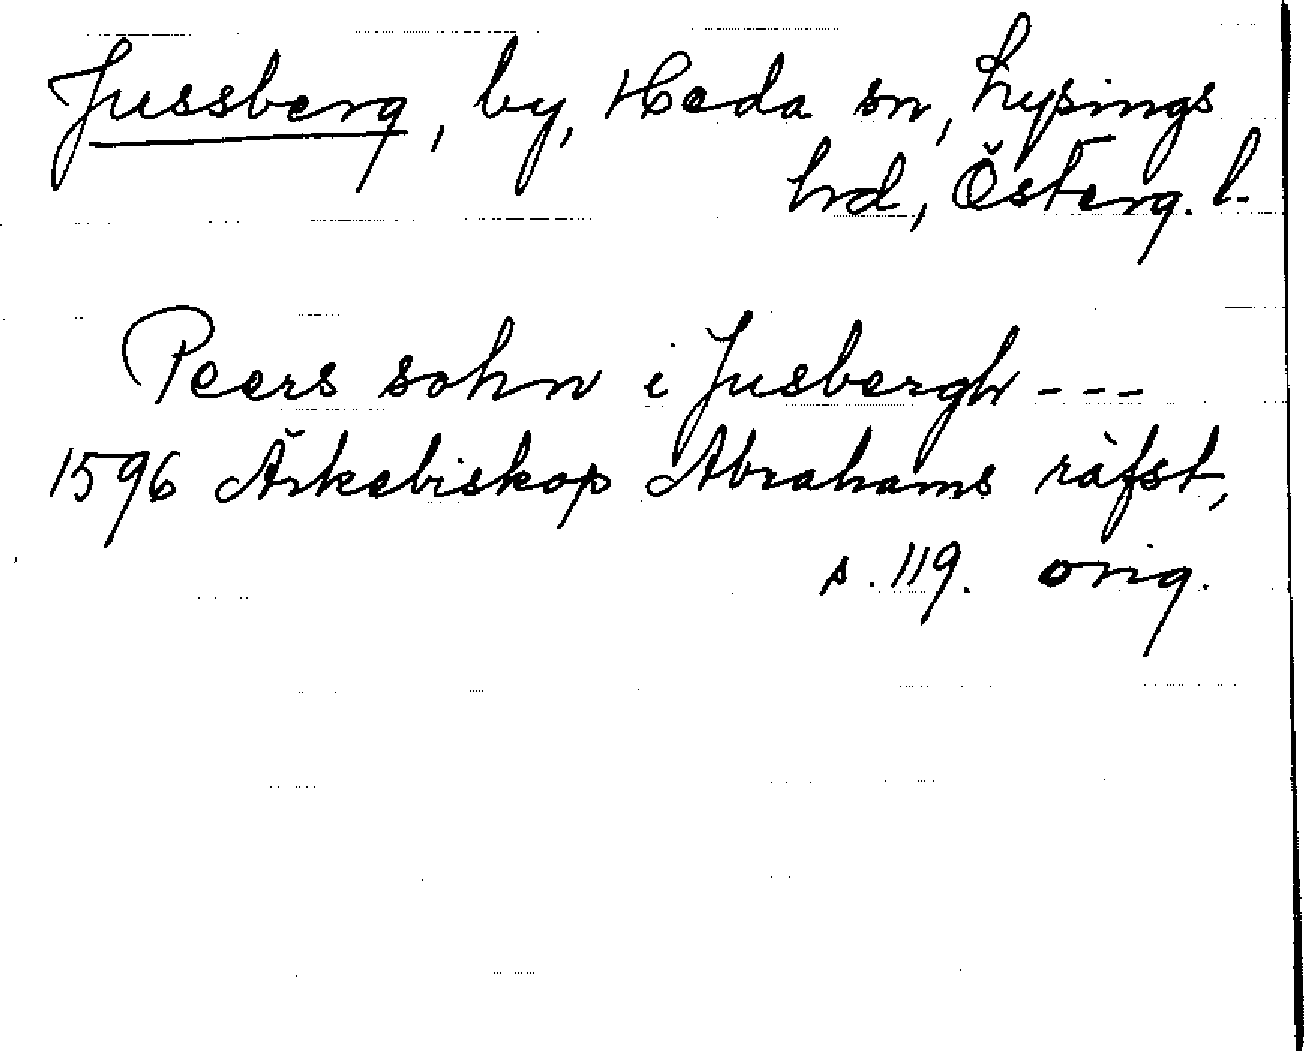 Jussberg, by, Heda sn, Lysings
hrd, Österg. l.
Peers sohn i Jusbergh ---
1596 Ärkebiskop Abrahams räfst,
s. 119. orig.